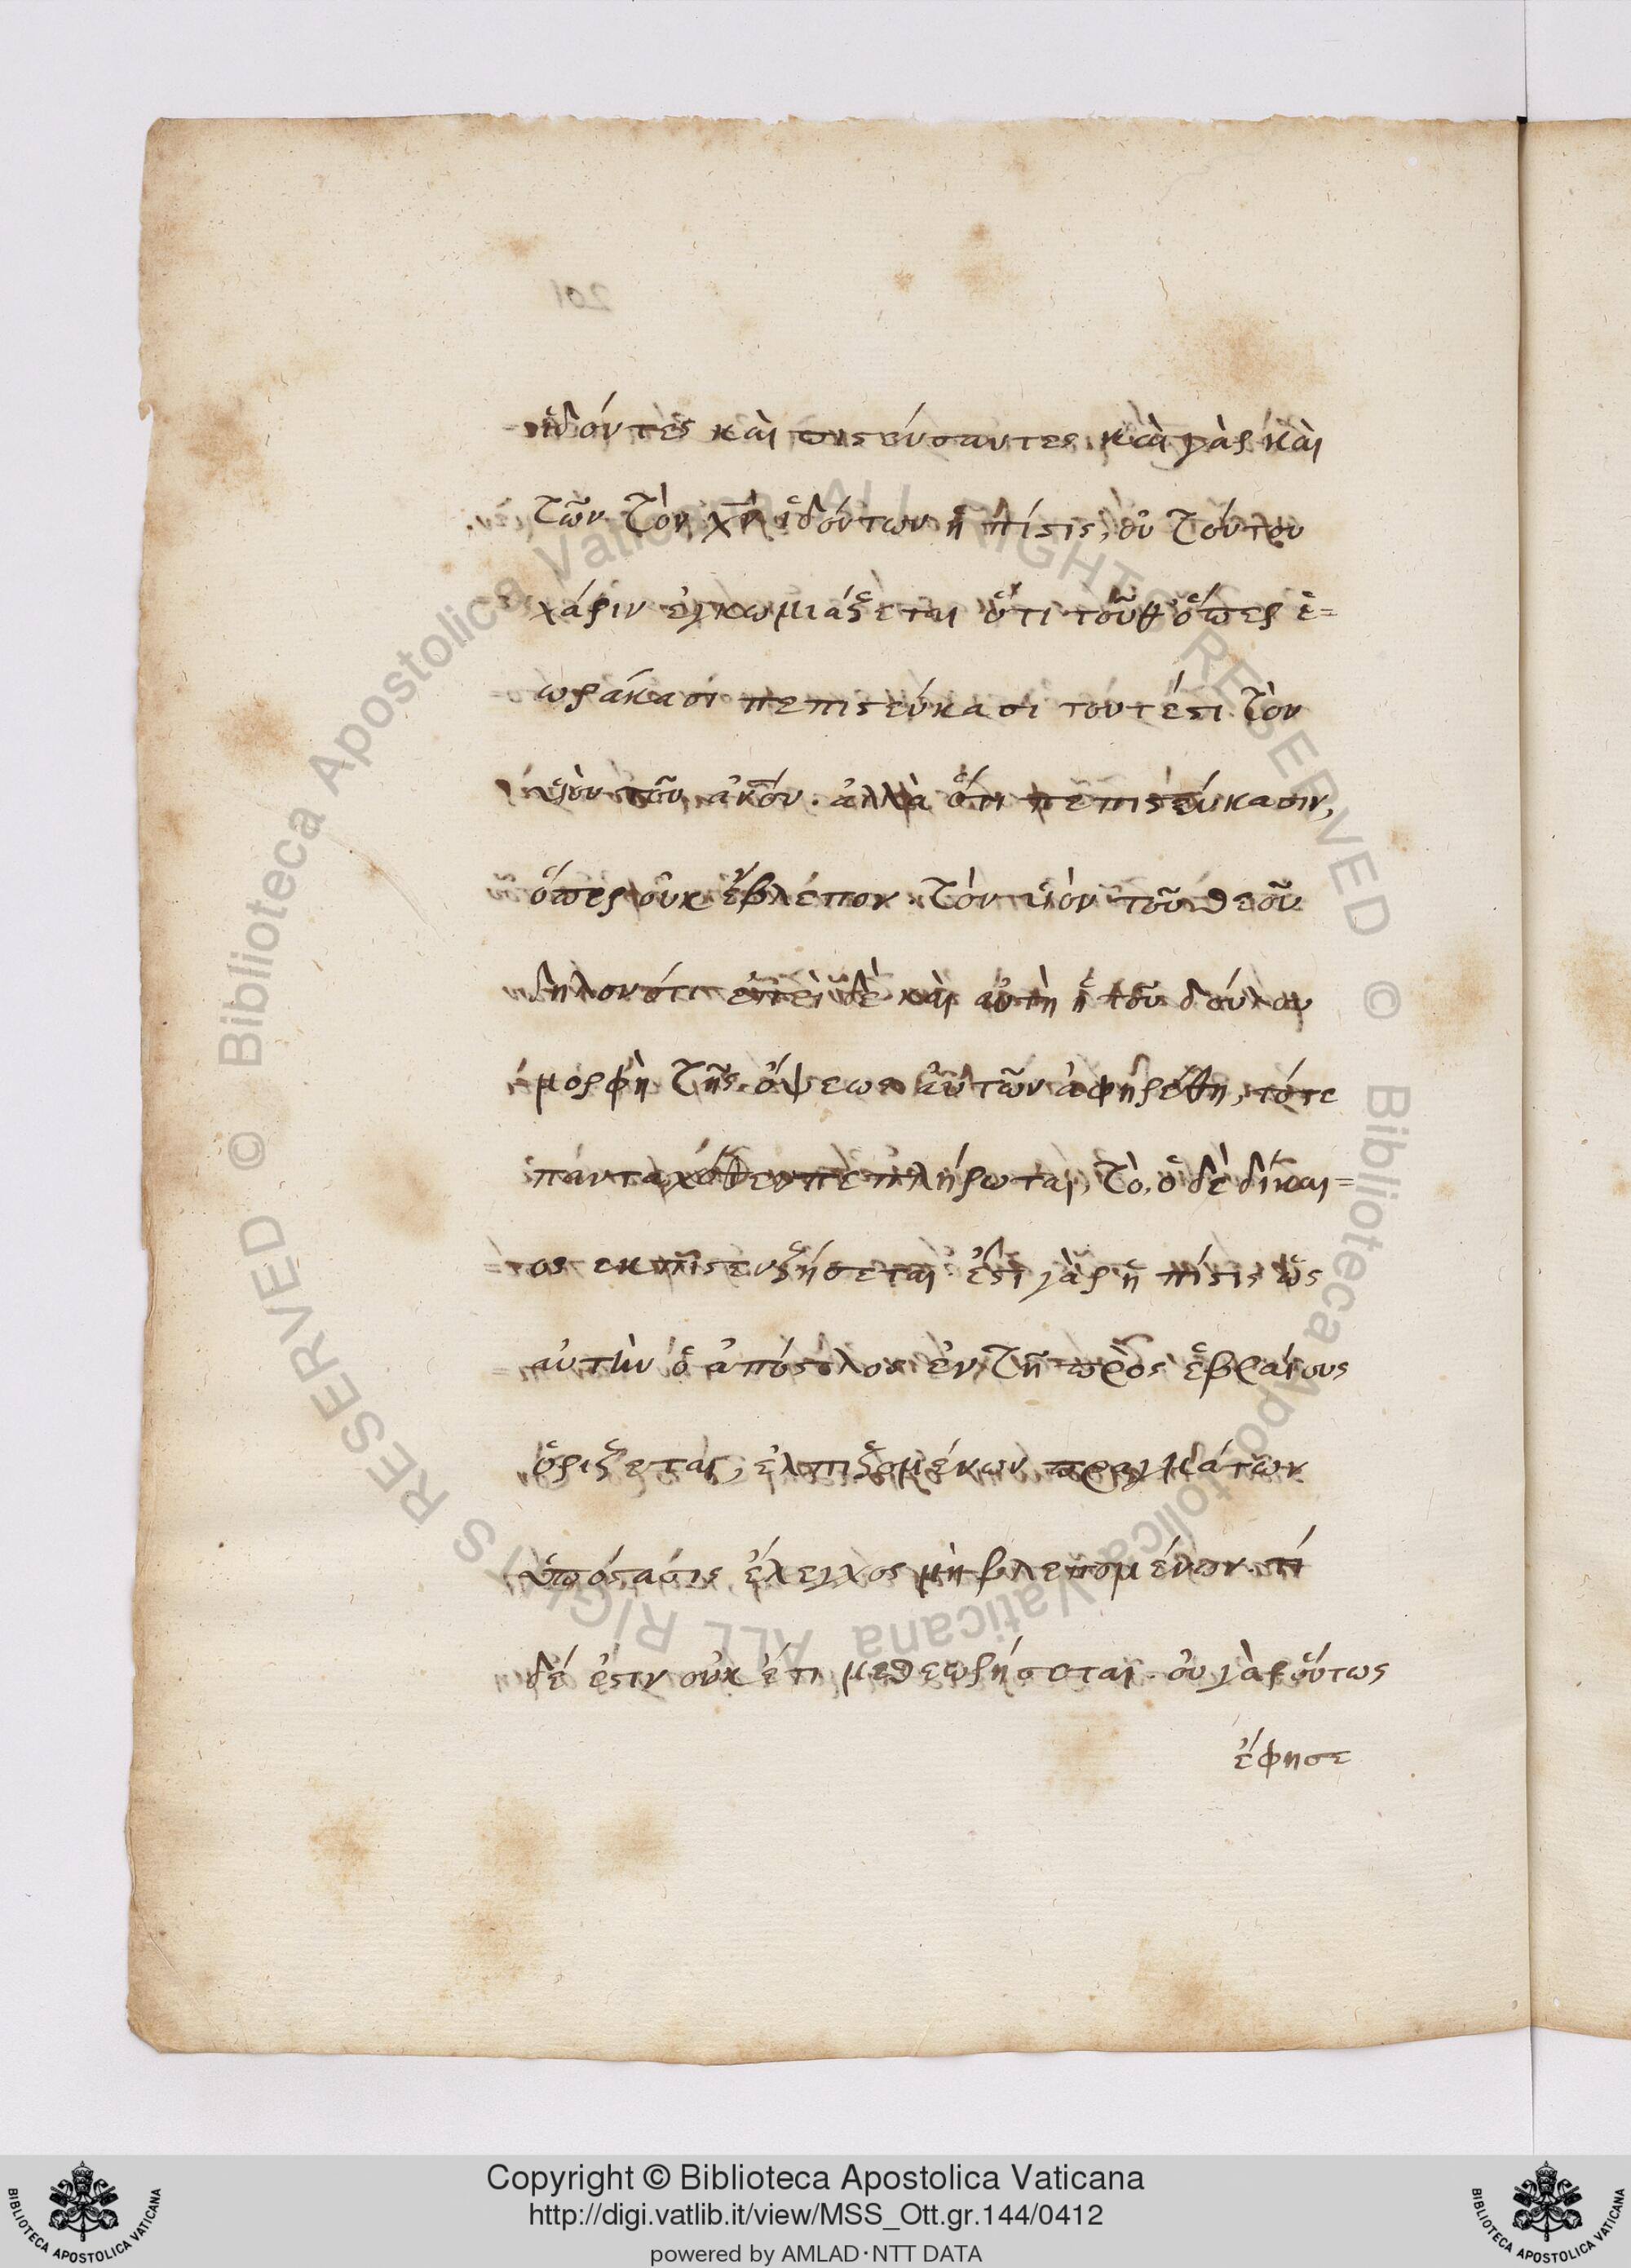 ἰδόντες καὶ πιστεύσαντες καὶ γὰρ καὶ
τῶν τὸν χν ἰδόντων ἡ πίστις, οὐ τούτου
χάριν ἐγκωμιάζεται ὅτι τοῦθ' ὅπερ ἑ=
ωράκασι πεπιστεύκασι τουτέστι τὸν
υἱὸν τοῦ ἀνόυ. ἀλλὰ ὅτι πεπιστεύκασιν,
ὅπερ οὐκ ἔβλεπον τὸν υἱὸν τοῦ θεοῦ
δηλονότι ἐπεὶ δὲ καὶ αὐτὴ ἡ τοῦ δούλου
μορφὴ τῆς ὄψεως αὐτῶν ἀφῃρέθη, τότε
πανταχόθεν πεπλήρωται, τὸ, ὁ δὲ δίκαι=
ος ἐκ πίστε ζήσεται ἔστι γὰρ ἡ πίστις ὡς
αὐτὴν ὁ ἀπόστολος ἐν τῇ πρὸς ἑβραίους
ὁρίζεται, ἐλπιζομένων πραγμάτων
ὑπόστασις ἔλεγχος μὴ βλεπομένων. τί
δέ ἐστιν οὐκ έτι με θεωρήσεται. οὐ γὰρ οὕτως
ἔφησε
201
Copyright © Biblioteca Apostolica Vaticana
http://digi.vatlib.it/view/MSS_Ott.gr.144/0412
powered by AMLAD·NTT DATA
BIBLIOTECA APOSTOLICA VATICANA
BIBLIOTECA APOSTOLICA VATICANA
© Biblioteca Apostolica Vaticana ALL RIGHTS RESERVED
© Biblioteca Apostolica Vaticana ALL RIGHTS RESERVED